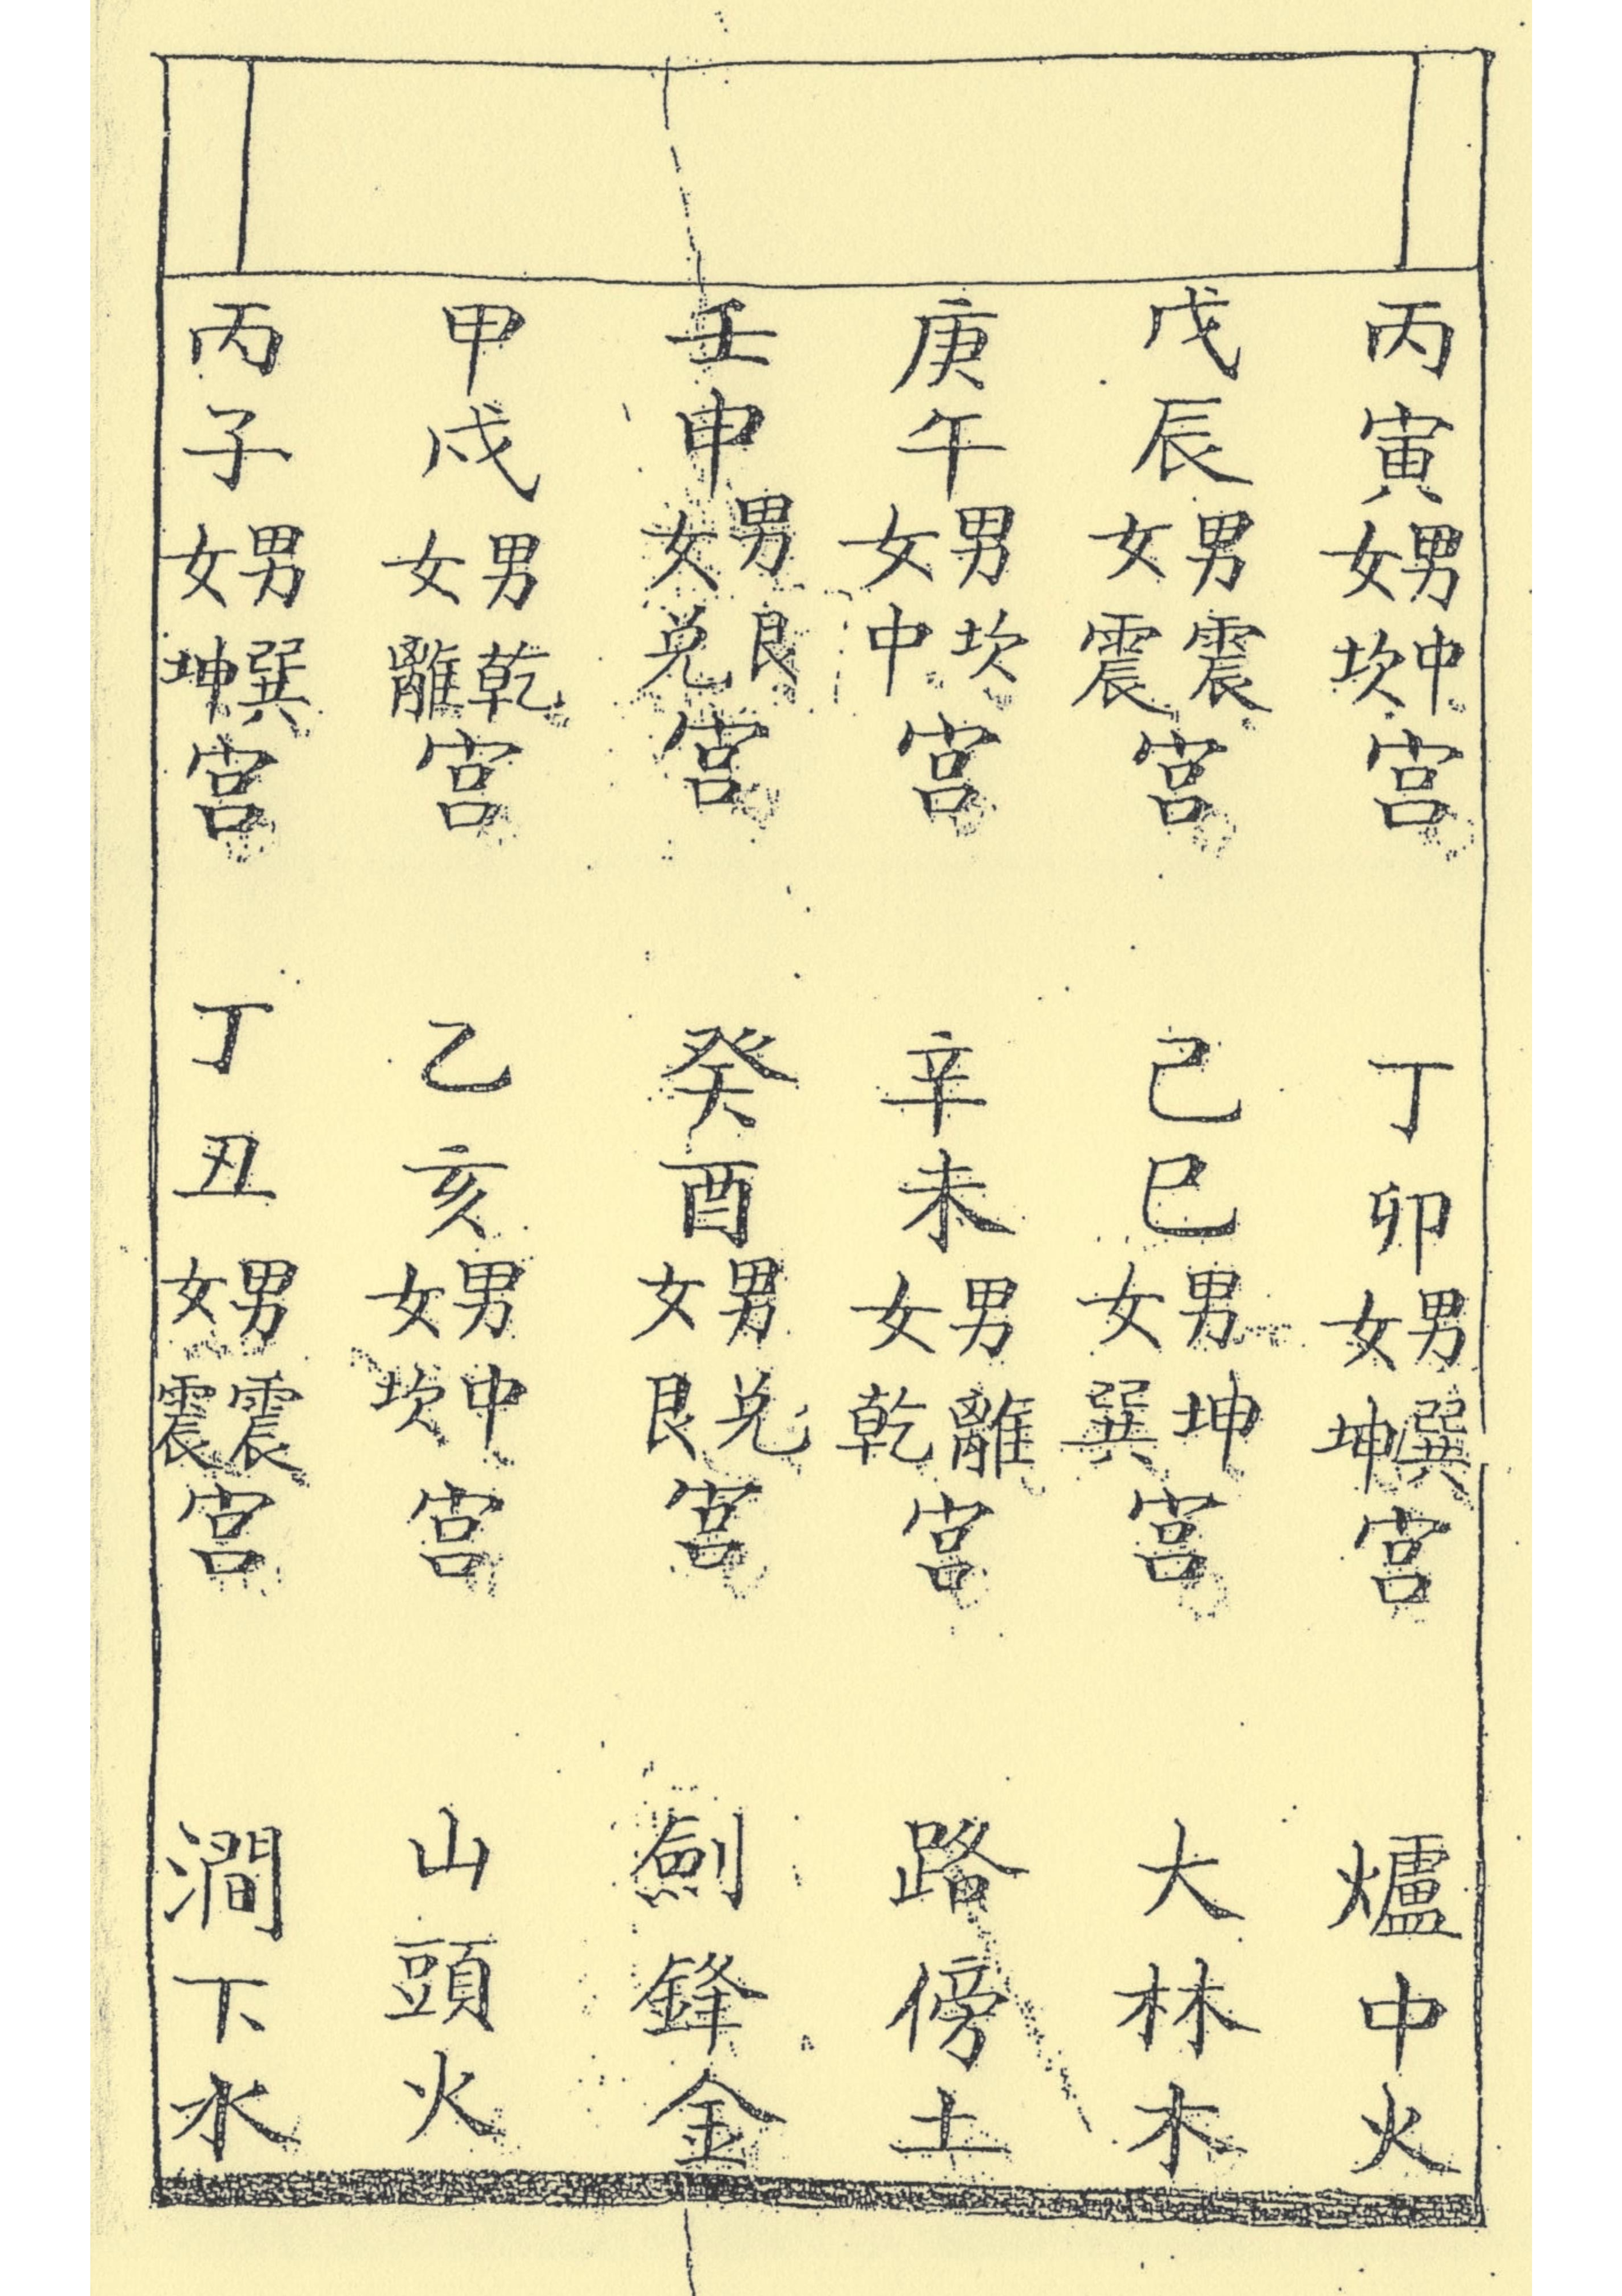 丙寅男中女坎宮 丁卯男巽女坤宮 爐中火
戊辰男震女震宮 己巳男坤女巽宮 大林木
庚午男坎女中宮 辛未男離女乾宮 路傍土
壬申男艮女兌宮 癸酉男兌女艮宮 劍鋒金
甲戌男乾女離宮 乙亥男中女坎宮 山頭火
丙子男巽女坤宮 丁丑男震女震宮 澗下水